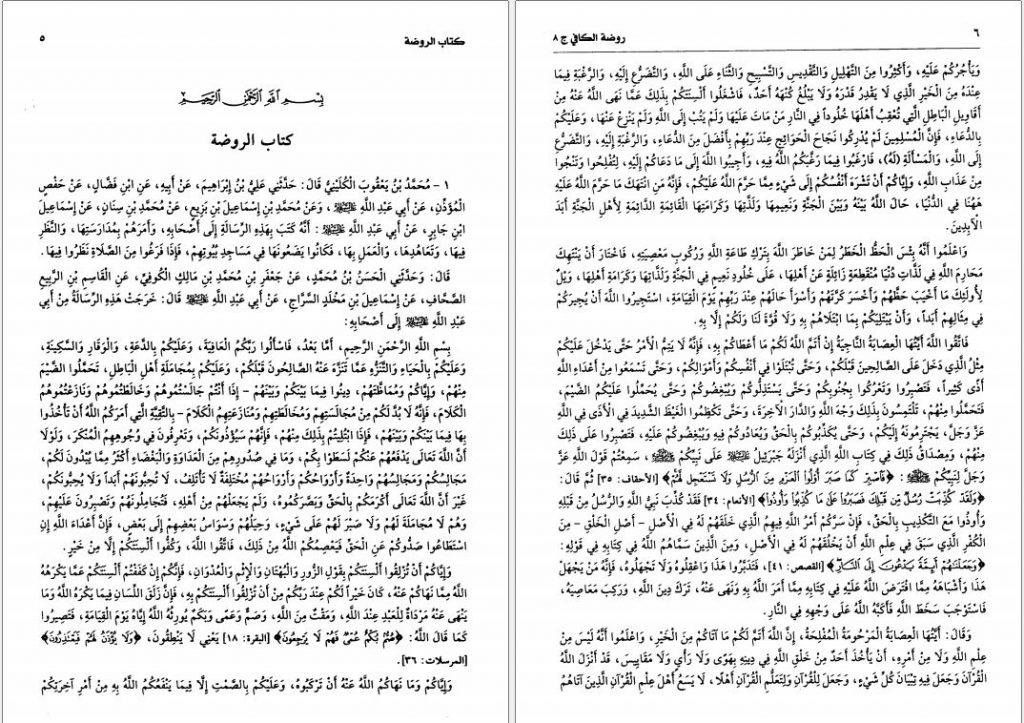 كتاب الروضة
٥
بِسْمِ اللَّهِ الرَّحْمَٰنِ الرَّحِيمِ
كتاب الروضة
١ - مُحَمَّدُ بْنُ يَعْقُوبَ الْكُلَيْنِيُّ قَالَ: حَدَّثَنِي عَلِيُّ بْنُ إِبْرَاهِيمَ، عَنْ أَبِيهِ، عَنِ ابْنِ فَضَّالٍ، عَنْ حَفْصٍ
الْمُؤَذِّنِ، عَنْ أَبِي عَبْدِ اللَّهِ ﷺ، وَعَنْ مُحَمَّدِ بْنِ إِسْمَاعِيلَ بْنِ بَزِيعٍ، عَنْ مُحَمَّدِ بْنِ سِنَانٍ، عَنْ إِسْمَاعِيلَ
ابْنِ جَابِرٍ، عَنْ أَبِي عَبْدِ اللَّهِ: أَنَّهُ كَتَبَ بِهَذِهِ الرِّسَالَةِ إِلَى أَصْحَابِهِ، وَأَمَرَهُمْ بِمُدَارَسَتِهَا، وَالنَّظَرِ
فِيهَا، وَتَعَاهُدِهَا، وَالْعَمَلِ بِهَا، فَكَانُوا يَضَعُونَهَا فِي مَسَاجِدِ بُيُوتِهِمْ، فَإِذَا فَرَغُوا مِنَ الصَّلَاةِ نَظَرُوا فِيهَا.
قَالَ: وَحَدَّثَنِي الْحَسَنُ بْنُ مُحَمَّدٍ، عَنْ جَعْفَرِ بْنِ مُحَمَّدِ بْنِ مَالِكٍ الْكُوفِيِّ، عَنِ الْقَاسِمِ بْنِ الرَّبِيعِ
الصَّحَّافِ، عَنْ إِسْمَاعِيلَ بْنِ مَخْلَدٍ السَّرَّاجِ، عَنْ أَبِي عَبْدِ اللَّهِ قَالَ: خَرَجَتْ هَذِهِ الرِّسَالَةُ مِنْ أَبِي
عَبْدِ اللَّهِ إِلَى أَصْحَابِهِ:
بِسْمِ اللَّهِ الرَّحْمَنِ الرَّحِيمِ، أَمَّا بَعْدُ، فَاسْأَلُوا رَبَّكُمُ الْعَافِيَةَ، وَعَلَيْكُمْ بِالدَّعَةِ، وَالْوَقَارِ وَالسَّكِينَةِ،
وَعَلَيْكُمْ بِالْحَيَاءِ وَالتَّنَزُّهِ عَمَّا تَنَزَّهَ عَنْهُ الصَّالِحُونَ قَبْلَكُمْ، وَعَلَيْكُمْ بِمُجَامَلَةِ أَهْلِ الْبَاطِلِ، تَحَمَّلُوا الضَّيْمَ
مِنْهُمْ، وَإِيَّاكُمْ وَمُمَاظَّتَهُمْ، دِينُوا فِيمَا بَيْنَكُمْ وَبَيْنَهُمْ - إِذَا أَنْتُمْ جَالَسْتُمُوهُمْ وَخَالَطْتُمُوهُمْ وَنَازَعْتُمُوهُمُ
الْكَلَامَ، فَإِنَّهُ لَا بُدَّ لَكُمْ مِنْ مُجَالَسَتِهِمْ وَمُخَالَطَتِهِمْ وَمُنَازَعَتِهِمُ الْكَلَامَ - بِالتَّقِيَّةِ الَّتِي أَمَرَكُمُ اللَّهُ أَنْ تَأْخُذُوا
بِهَا فِيمَا بَيْنَكُمْ وَبَيْنَهُمْ، فَإِذَا ابْتُلِيتُمْ بِذَلِكَ مِنْهُمْ، فَإِنَّهُمْ سَيُؤْذُونَكُمْ، وَتَعْرِفُونَ فِي وُجُوهِهِمُ الْمُنْكَرَ، وَلَوْلَا
أَنَّ اللَّهَ تَعَالَى يَدْفَعُهُمْ عَنْكُمْ لَسَطَوْا بِكُمْ، وَمَا فِي صُدُورِهِمْ مِنَ الْعَدَاوَةِ وَالْبَغْضَاءِ أَكْثَرُ مِمَّا يُبْدُونَ لَكُمْ،
مَجَالِسُكُمْ وَمَجَالِسُهُمْ وَاحِدَةٌ وَأَرْوَاحُكُمْ وَأَرْوَاحُهُمْ مُخْتَلِفَةٌ لَا تَأْتَلِفُ، لَا تُحِبُّونَهُمْ أَبَداً وَلَا يُحِبُّونَكُمْ،
غَيْرَ أَنَّ اللَّهَ تَعَالَى أَكْرَمَكُمْ بِالْحَقِّ وَبَصَّرَكُمُوهُ، وَلَمْ يَجْعَلْهُمْ مِنْ أَهْلِهِ، فَتُجَامِلُونَهُمْ وَتَصْبِرُونَ عَلَيْهِمْ،
وَهُمْ لَا مُجَامَلَةَ لَهُمْ وَلَا صَبْرَ لَهُمْ عَلَى شَيْءٍ، وَحِيَلُهُمْ وَسْوَاسُ بَعْضِهِمْ إِلَى بَعْضٍ، فَإِنَّ أَعْدَاءَ اللَّهِ إِنِ
اسْتَطَاعُوا صَدُّوكُمْ عَنِ الْحَقِّ فَيَعْصِمُكُمُ اللَّهُ مِنْ ذَلِكَ، فَاتَّقُوا اللَّهَ، وَكُفُّوا أَلْسِنَتَكُمْ إِلَّا مِنْ خَيْرٍ.
وَإِيَّاكُمْ أَنْ تُزْلِقُوا أَلْسِنَتَكُمْ بِقَوْلِ الزُّورِ وَالْبُهْتَانِ وَالْإِثْمِ وَالْعُدْوَانِ، فَإِنَّكُمْ إِنْ كَفَفْتُمْ أَلْسِنَتَكُمْ عَمَّا يَكْرَهُهُ
اللَّهُ مِمَّا نَهَاكُمْ عَنْهُ، كَانَ خَيْراً لَكُمْ عِنْدَ رَبِّكُمْ مِنْ أَنْ تُزْلِقُوا أَلْسِنَتَكُمْ بِهِ، فَإِنَّ زَلَقَ اللِّسَانِ فِيمَا يَكْرَهُ اللَّهُ وَمَا
يَنْهَى عَنْهُ مَرْدَاةٌ لِلْعَبْدِ عِنْدَ اللَّهِ، وَمَقْتٌ مِنَ اللَّهِ، وَصَمٌّ وَعَمًى وَبَكَمٌ يُورِثُهُ اللَّهُ إِيَّاهُ يَوْمَ الْقِيَامَةِ، فَتَصِيرُوا
كَمَا قَالَ اللَّهُ: ﴿صُمٌّ بُكْمٌ عُمْيٌ فَهُمْ لَا يَرْجِعُونَ﴾ [البقرة: ١٨] يَعْنِي لَا يَنْطِقُونَ، ﴿وَلَا يُؤْذَنُ لَهُمْ فَيَعْتَذِرُونَ﴾
[المرسلات: ٣٦].
وَإِيَّاكُمْ وَمَا نَهَاكُمُ اللَّهُ عَنْهُ أَنْ تَرْكَبُوهُ، وَعَلَيْكُمْ بِالصَّمْتِ إِلَّا فِيمَا يَنْفَعُكُمُ اللَّهُ بِهِ مِنْ أَمْرِ آخِرَتِكُمْ
٦
روضة الكافي ج ٨
وَيَأْجُرُكُمْ عَلَيْهِ، وَأَكْثِرُوا مِنَ التَّهْلِيلِ وَالتَّقْدِيسِ وَالتَّسْبِيحِ وَالثَّنَاءِ عَلَى اللَّهِ، وَالتَّضَرُّعِ إِلَيْهِ، وَالرَّغْبَةِ فِيمَا
عِنْدَهُ مِنَ الْخَيْرِ الَّذِي لَا يَقْدِرُ قَدْرَهُ وَلَا يَبْلُغُ كُنْهَهُ أَحَدٌ، فَاشْغَلُوا أَلْسِنَتَكُمْ بِذَلِكَ عَمَّا نَهَى اللَّهُ عَنْهُ مِنْ
أَقَاوِيلِ الْبَاطِلِ الَّتِي تُعْقِبُ أَهْلَهَا خُلُوداً فِي النَّارِ مَنْ مَاتَ عَلَيْهَا وَلَمْ يَتُبْ إِلَى اللَّهِ وَلَمْ يَنْزِعْ عَنْهَا، وَعَلَيْكُمْ
بِالدُّعَاءِ، فَإِنَّ الْمُسْلِمِينَ لَمْ يُدْرِكُوا نَجَاحَ الْحَوَائِجِ عِنْدَ رَبِّهِمْ بِأَفْضَلَ مِنَ الدُّعَاءِ، وَالرَّغْبَةِ إِلَيْهِ، وَالتَّضَرُّعِ
إِلَى اللَّهِ، وَالْمَسْأَلَةِ (لَهُ)، فَارْغَبُوا فِيمَا رَغَّبَكُمُ اللَّهُ فِيهِ، وَأَجِيبُوا اللَّهَ إِلَى مَا دَعَاكُمْ إِلَيْهِ، لِتُفْلِحُوا وَتَنْجُوا
مِنْ عَذَابِ اللَّهِ، وَإِيَّاكُمْ أَنْ تَشْرَهَ أَنْفُسُكُمْ إِلَى شَيْءٍ مِمَّا حَرَّمَ اللَّهُ عَلَيْكُمْ، فَإِنَّهُ مَنِ انْتَهَكَ مَا حَرَّمَ اللَّهُ عَلَيْهِ
هَهُنَا فِي الدُّنْيَا، حَالَ اللَّهُ بَيْنَهُ وَبَيْنَ الْجَنَّةِ وَنَعِيمِهَا وَلَذَّتِهَا وَكَرَامَتِهَا الْقَائِمَةِ الدَّائِمَةِ لِأَهْلِ الْجَنَّةِ أَبَدَ
الْآبِدِينَ.
وَاعْلَمُوا أَنَّهُ بِئْسَ الْحَظُّ الْخَطَرُ لِمَنْ خَاطَرَ اللَّهَ بِتَرْكِ طَاعَةِ اللَّهِ وَرُكُوبِ مَعْصِيَتِهِ، فَاخْتَارَ أَنْ يَنْتَهِكَ
مَحَارِمَ اللَّهِ فِي لَذَّاتِ دُنْيَا مُنْقَطِعَةٍ زَائِلَةٍ عَنْ أَهْلِهَا، عَلَى خُلُودِ نَعِيمٍ فِي الْجَنَّةِ وَلَذَّاتِهَا وَكَرَامَةِ أَهْلِهَا، وَيْلٌ
لِأُولَئِكَ مَا أَخْيَبَ حَظَّهُمْ وَأَخْسَرَ كَرَّتَهُمْ وَأَسْوَأَ حَالَهُمْ عِنْدَ رَبِّهِمْ يَوْمَ الْقِيَامَةِ، اسْتَجِيرُوا اللَّهَ أَنْ يُجِيرَكُمْ
فِي مِثَالِهِمْ أَبَداً، وَأَنْ يَبْتَلِيَكُمْ بِمَا ابْتَلَاهُمْ بِهِ وَلَا قُوَّةَ لَنَا وَلَكُمْ إِلَّا بِهِ.
فَاتَّقُوا اللَّهَ أَيَّتُهَا الْعِصَابَةُ النَّاجِيَةُ إِنْ أَتَمَّ اللَّهُ لَكُمْ مَا أَعْطَاكُمْ بِهِ، فَإِنَّهُ لَا يَتِمُّ الْأَمْرُ حَتَّى يَدْخُلَ عَلَيْكُمْ
مِثْلُ الَّذِي دَخَلَ عَلَى الصَّالِحِينَ قَبْلَكُمْ، وَحَتَّى تُبْتَلَوْا فِي أَنْفُسِكُمْ وَأَمْوَالِكُمْ، وَحَتَّى تَسْمَعُوا مِنْ أَعْدَاءِ اللَّهِ
أَذًى كَثِيراً، فَتَصْبِرُوا وَتَعْرُكُوا بِجُنُوبِكُمْ، وَحَتَّى يَسْتَذِلُّوكُمْ وَيُبْغِضُوكُمْ، وَحَتَّى يُحَمِّلُوا عَلَيْكُمُ الضَّيْمَ،
فَتَحَمَّلُوا مِنْهُمْ، تَلْتَمِسُونَ بِذَلِكَ وَجْهَ اللَّهِ وَالدَّارَ الْآخِرَةَ، وَحَتَّى تَكْظِمُوا الْغَيْظَ الشَّدِيدَ فِي الْأَذَى فِي اللَّهِ
عَزَّ وَجَلَّ، يَجْتَرِمُونَهُ إِلَيْكُمْ، وَحَتَّى يُكَذِّبُوكُمْ بِالْحَقِّ وَيُعَادُوكُمْ فِيهِ وَيُبْغِضُوكُمْ عَلَيْهِ، فَتَصْبِرُوا عَلَى ذَلِكَ
مِنْهُمْ، وَمِصْدَاقُ ذَلِكَ فِي كِتَابِ اللَّهِ الَّذِي أَنْزَلَهُ جَبْرَئِيلُ عَلَى نَبِيِّكُمْ ﷺ، سَمِعْتُمْ قَوْلَ اللَّهِ عَزَّ
وَجَلَّ لِنَبِيِّكُمْ ﷺ: ﴿فَاصْبِرْ كَمَا صَبَرَ أُولُوا الْعَزْمِ مِنَ الرُّسُلِ وَلَا تَسْتَعْجِلْ لَهُمْ﴾ [الأحقاف: ٣٥] ثُمَّ قَالَ:
﴿وَلَقَدْ كُذِّبَتْ رُسُلٌ مِنْ قَبْلِكَ فَصَبَرُوا عَلَى مَا كُذِّبُوا وَأُوذُوا﴾ [الأنعام: ٣٤] فَقَدْ كُذِّبَ نَبِيُّ اللَّهِ وَالرُّسُلُ مِنْ قَبْلِهِ
وَأُوذُوا مَعَ التَّكْذِيبِ بِالْحَقِّ، فَإِنْ سَرَّكُمْ أَمْرُ اللَّهِ فِيهِمُ الَّذِي خَلَقَهُمْ لَهُ فِي الْأَصْلِ - أَصْلِ الْخَلْقِ - مِنَ
الْكُفْرِ الَّذِي سَبَقَ فِي عِلْمِ اللَّهِ أَنْ يَخْلُقَهُمْ لَهُ فِي الْأَصْلِ، وَمِنَ الَّذِينَ سَمَّاهُمُ اللَّهُ فِي كِتَابِهِ فِي قَوْلِهِ:
﴿وَجَعَلْنَاهُمْ أَئِمَّةً يَدْعُونَ إِلَى النَّارِ﴾ [القصص: ٤١]، فَتَدَبَّرُوا هَذَا وَاعْقِلُوهُ وَلَا تَجْهَلُوهُ، فَإِنَّهُ مَنْ يَجْهَلْ
هَذَا وَأَشْبَاهَهُ مِمَّا افْتَرَضَ اللَّهُ عَلَيْهِ فِي كِتَابِهِ مِمَّا أَمَرَ اللَّهُ بِهِ وَنَهَى عَنْهُ، تَرَكَ دِينَ اللَّهِ، وَرَكِبَ مَعَاصِيَهُ،
فَاسْتَوْجَبَ سَخَطَ اللَّهِ، فَأَكَبَّهُ اللَّهُ عَلَى وَجْهِهِ فِي النَّارِ.
وَقَالَ: أَيَّتُهَا الْعِصَابَةُ الْمَرْحُومَةُ الْمُفْلِحَةُ، إِنَّ اللَّهَ أَتَمَّ لَكُمْ مَا آتَاكُمْ مِنَ الْخَيْرِ، وَاعْلَمُوا أَنَّهُ لَيْسَ مِنْ
عِلْمِ اللَّهِ وَلَا مِنْ أَمْرِهِ، أَنْ يَأْخُذَ أَحَدٌ مِنْ خَلْقِ اللَّهِ فِي دِينِهِ بِهَوًى وَلَا رَأْيٍ وَلَا مَقَايِيسَ، قَدْ أَنْزَلَ اللَّهُ
الْقُرْآنَ وَجَعَلَ فِيهِ تِبْيَانَ كُلِّ شَيْءٍ، وَجَعَلَ لِلْقُرْآنِ وَلِتَعَلُّمِ الْقُرْآنِ أَهْلًا، لَا يَسَعُ أَهْلَ عِلْمِ الْقُرْآنِ الَّذِينَ آتَاهُمُ